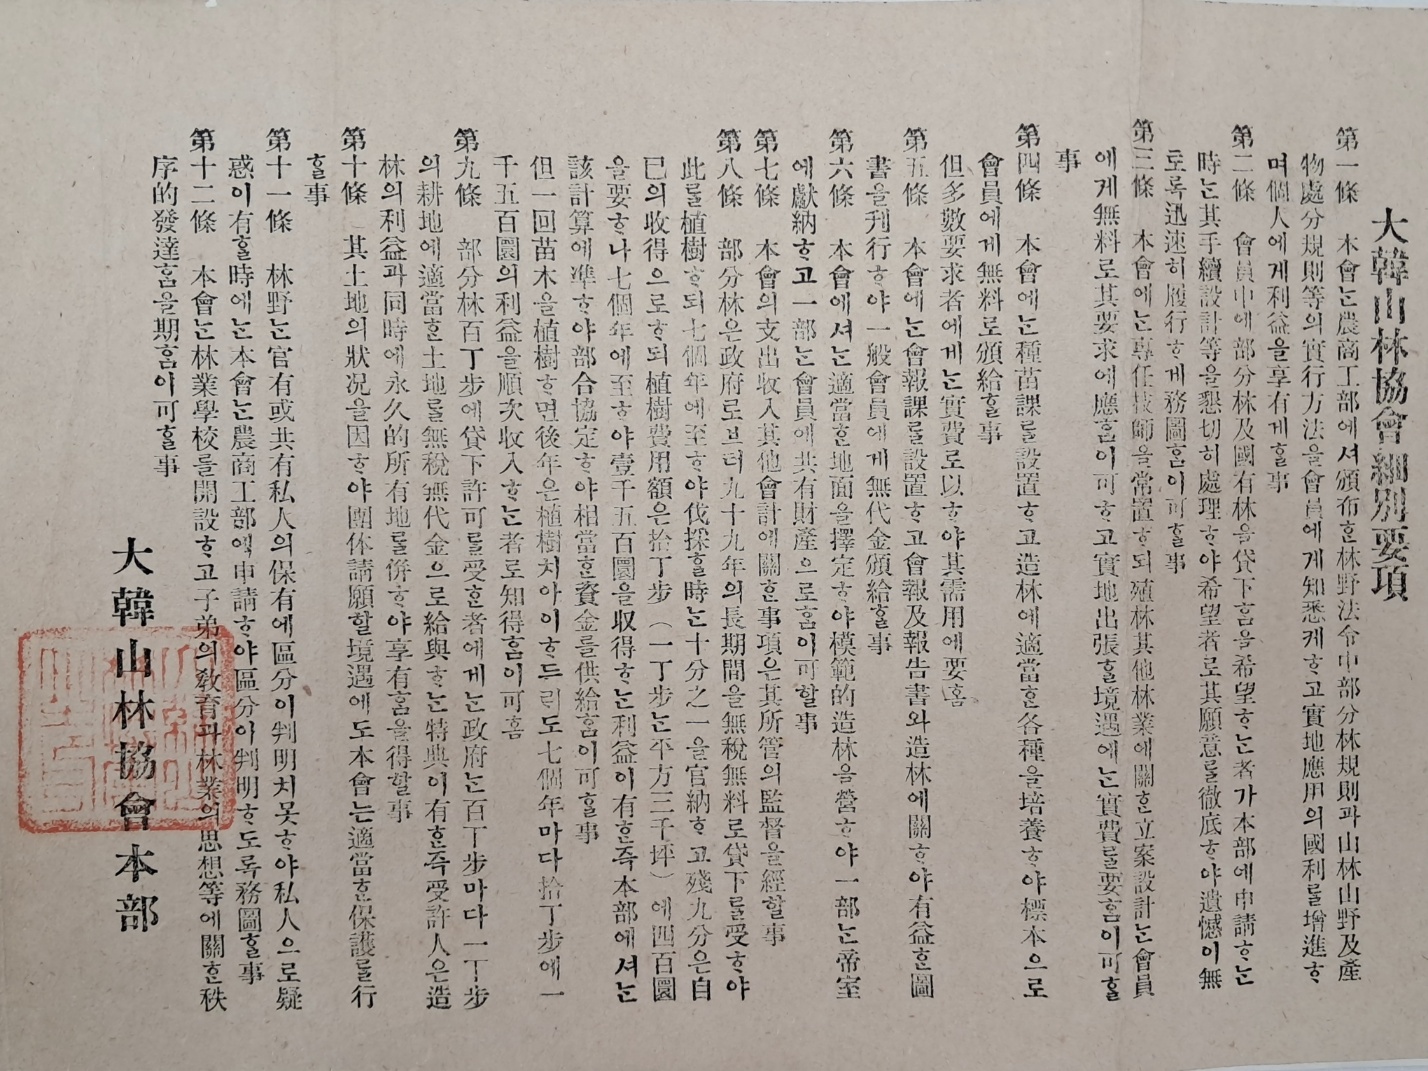 大韓山林協會細別要項
第一條 本會ᄂᆞᆫ農商工部에셔頒布ᄒᆞᆫ林野法令中部分林規則과山林山野及產
物處分規則等의實行方法을會員에게知悉케ᄒᆞ고實地應用의國利를增進ᄒᆞ
며個人에게利益을享有케ᄒᆞᆯ事
第二條 會員中에部分林及國有林을貸下홈을希望ᄒᆞᄂᆞᆫ者가本部에申請ᄒᆞᄂᆞᆫ
時ᄂᆞᆫ其手續設計等을懇切히處理ᄒᆞ야希望者로其願意를徹底ᄒᆞ야遺憾이無
토록迅速히履行ᄒᆞ게務圖홈이可ᄒᆞᆯ事
第三條 本會에ᄂᆞᆫ專任技師을常置ᄒᆞ되殖林其他林業에關ᄒᆞᆫ立案設計ᄂᆞᆫ會員
에게無料로其要求에應홈이可ᄒᆞ고實地出張ᄒᆞᆯ境遇에ᄂᆞᆫ實費를要홈이可ᄒᆞᆯ
事
第四條 本會에ᄂᆞᆫ種苗課를設置ᄒᆞ고造林에適當ᄒᆞᆫ各種을培養ᄒᆞ야標本으로
會員에게無料로頒給ᄒᆞᆯ事
但多數要求者에게ᄂᆞᆫ實費로以ᄒᆞ야其需用에要홈
第五條 本會에ᄂᆞᆫ會報課를設置ᄒᆞ고會報及報告書와造林에關ᄒᆞ야有益ᄒᆞᆫ圖
書을刊行ᄒᆞ야一般會員에게無代金頒給ᄒᆞᆯ事
第六條 本會에셔ᄂᆞᆫ適當ᄒᆞᆫ地面을擇定ᄒᆞ야模範的造林을營ᄒᆞ야一部ᄂᆞᆫ帝室
에獻納ᄒᆞ고一部ᄂᆞᆫ會員에共有財產으로홈이可할事
第七條 本會의支出收入其他會計에關ᄒᆞᆫ事項은其所管의監督을經할事
第八條 部分林은政府로브터九十九年의長期間을無稅無料로貸下를受ᄒᆞ야
此를植樹ᄒᆞ되七個年에至ᄒᆞ야伐採ᄒᆞᆯ時ᄂᆞᆫ十分之一을官納ᄒᆞ고殘九分은自
已의收得으로ᄒᆞ되植樹費用額은拾丁步(一丁步ᄂᆞᆫ平方三千坪)에四百圜
을要ᄒᆞ나七個年에至ᄒᆞ야壹千五百圜을収得ᄒᆞᄂᆞᆫ利益이有ᄒᆞᆫ즉本部에셔ᄂᆞᆫ
該計算에準ᄒᆞ야部合協定ᄒᆞ야相當ᄒᆞᆫ資金를供給홈이可ᄒᆞᆯ事
但一回苗木을植樹ᄒᆞ면後年은植樹치아이ᄒᆞ드리도七個年마다拾丁步에一
千五百圜의利益을順次收入ᄒᆞᄂᆞᆫ者로知得홈이可홈
第九條 部分林百丁步에貸下許可를受ᄒᆞᆫ者에게ᄂᆞᆫ政府ᄂᆞᆫ百丁步마다一丁步
의耕地에適當ᄒᆞᆫ土地를無稅無代金으로給與ᄒᆞᄂᆞᆫ特典이有ᄒᆞᆫ즉受許人은造
林의利益과同時에永久的所有地를併ᄒᆞ야享有홈을得할事
第十條 其土地의狀況을因ᄒᆞ야團体請願할境遇에도本會는適當ᄒᆞᆫ保護를行
ᄒᆞᆯ事
第十一條 林野ᄂᆞᆫ官有或共有私人의保有에區分이判明치못ᄒᆞ야私人으로疑
惑이有ᄒᆞᆯ時에ᄂᆞᆫ本會ᄂᆞᆫ農商工部에申請ᄒᆞ야區分이判明ᄒᆞ도록務圖ᄒᆞᆯ事
第十二條 本會ᄂᆞᆫ林業學校를開設ᄒᆞ고子弟의敎育과林業의思想等에關ᄒᆞᆫ秩
序的發達홈을期홈이可ᄒᆞᆯ事
大韓山林協會本部